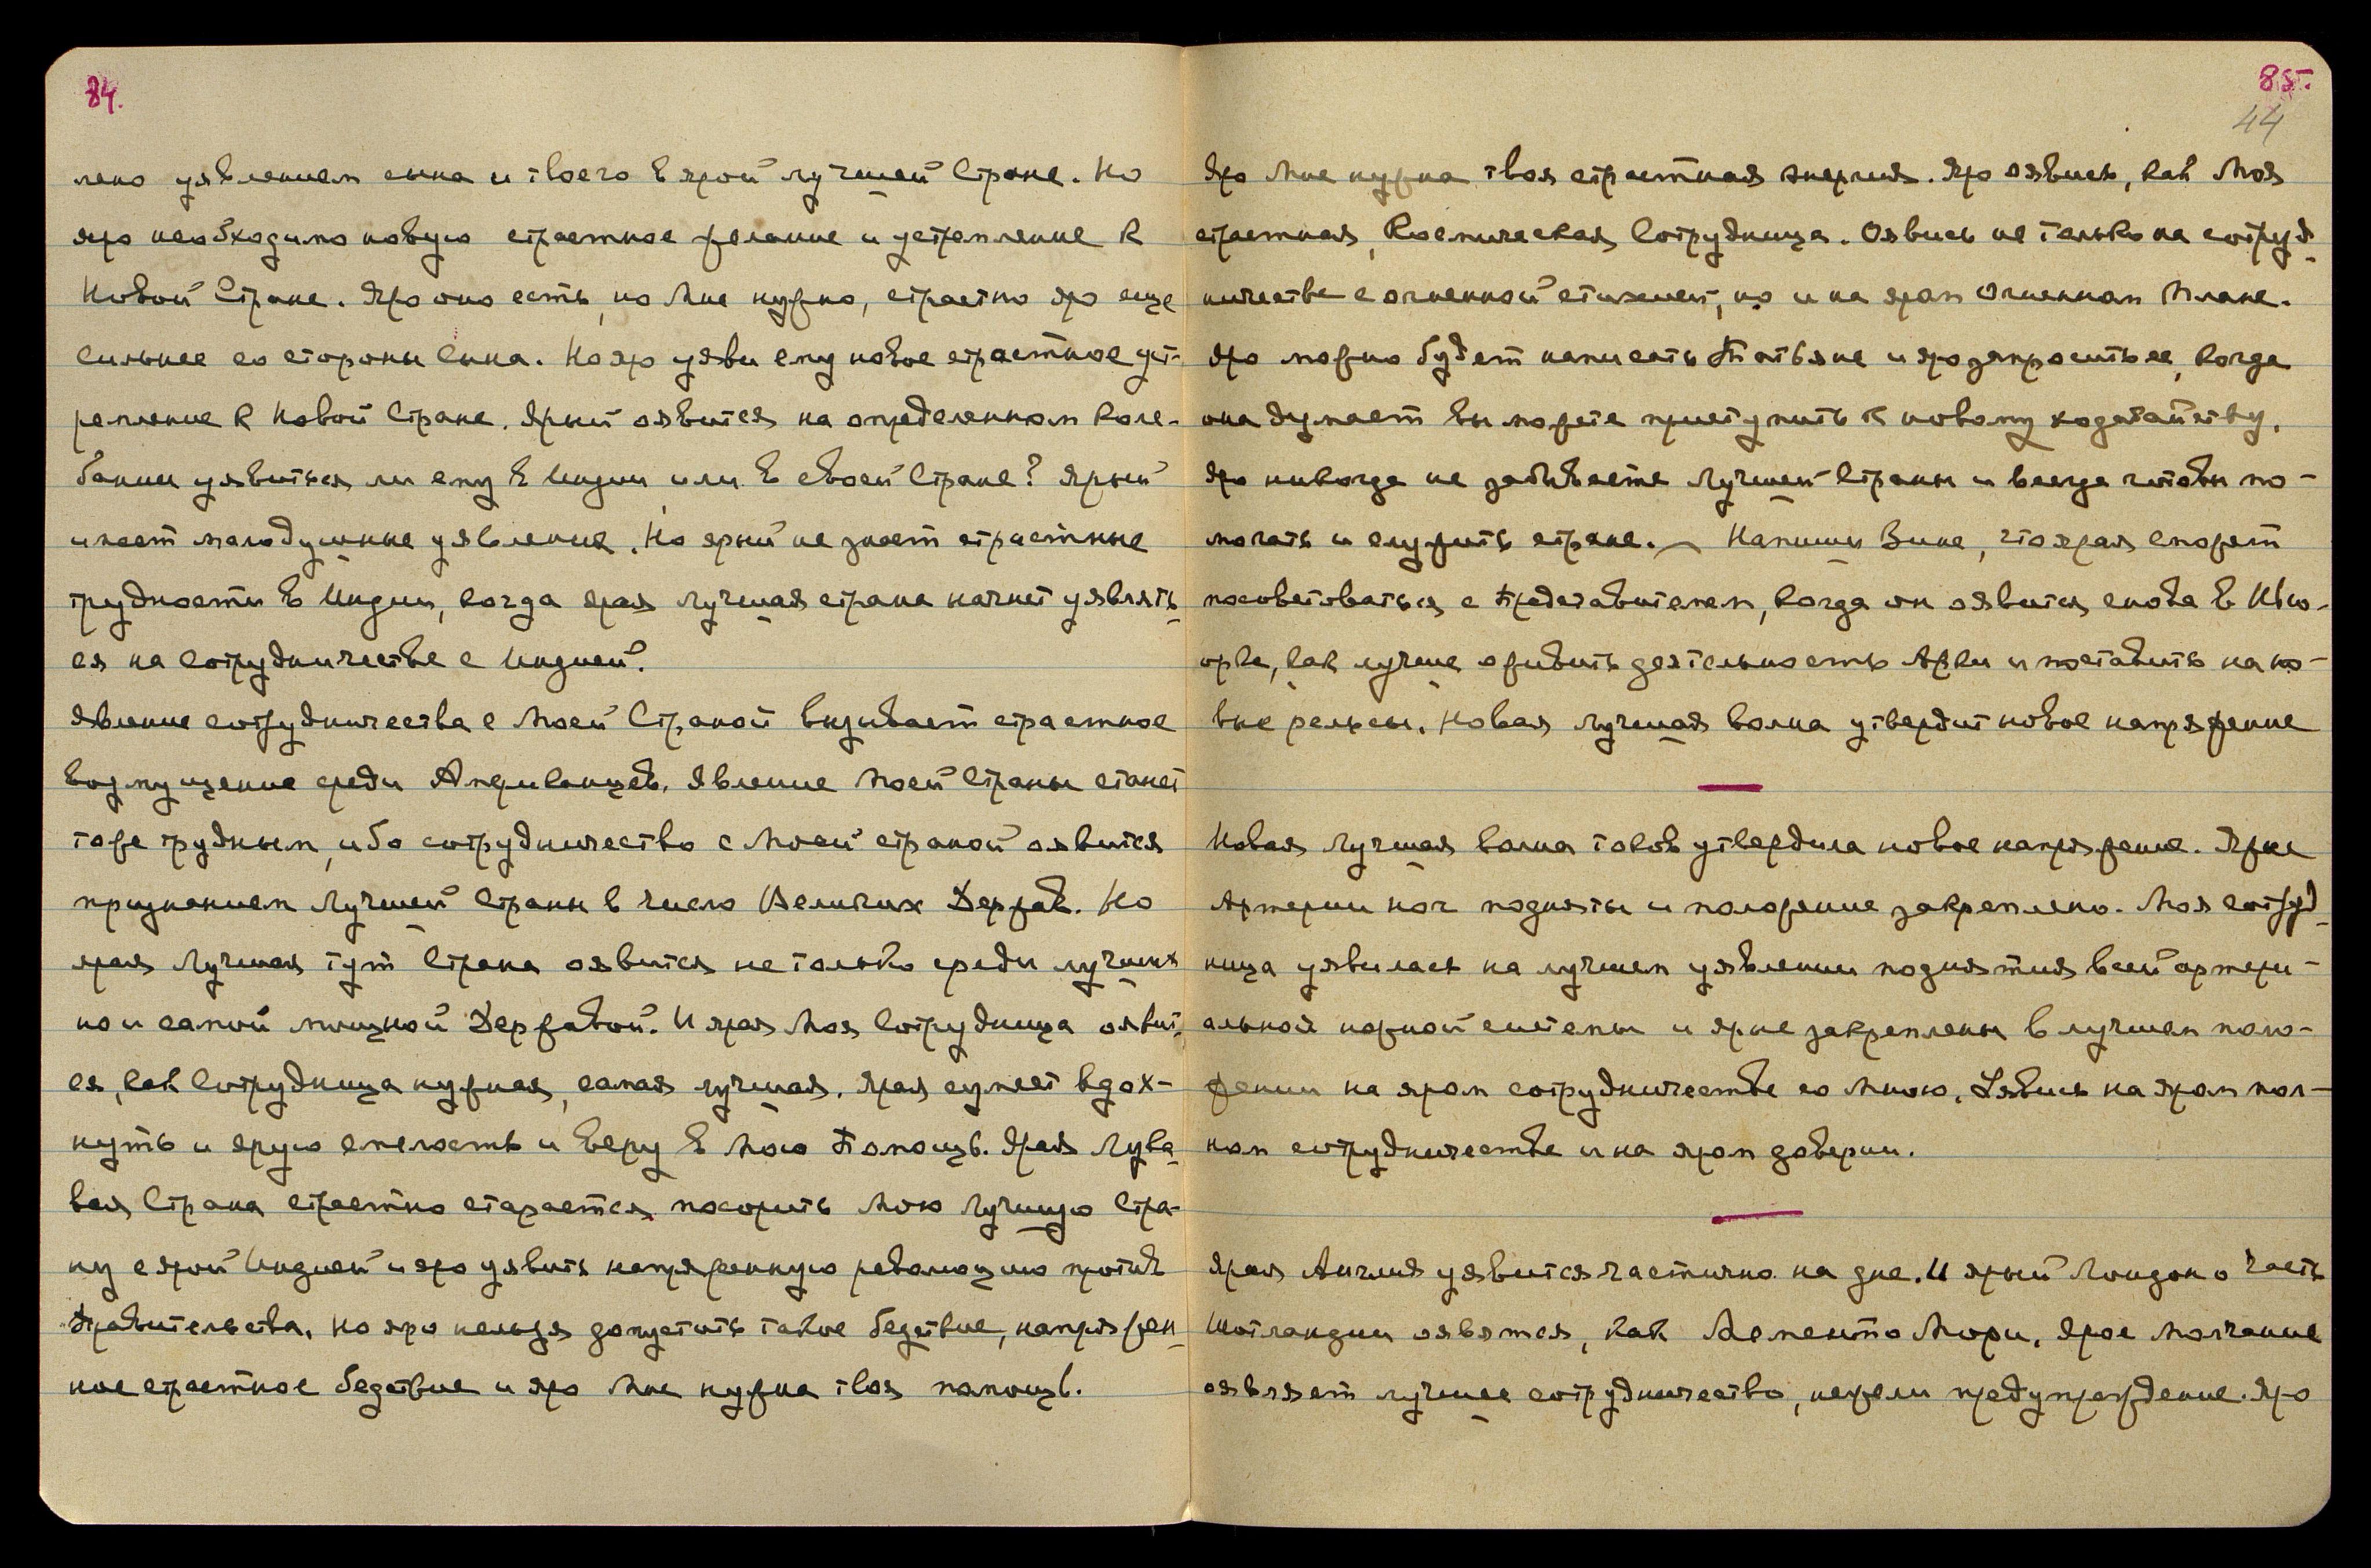 84.
лено уявлением сына и твоего в ярой лучшей Стране. Но
яро необходимо новую страстное желание и устремление к
Новой Стране. Яро оно есть, но Мне нужно, страстно яро еще
сильнее со стороны сына. Но яро уяви ему новое страстное уст-
ремление к Новой Стране. Ярый оявится на определенном коле-
бании уявиться ли ему в Индии или в своей Стране? Ярый
имеет малодушные уявления. Но ярый не знает страстные
трудности в Индии, когда ярая лучшая страна начнет уявлять-
ся на сотрудничестве с Индией.
Явление сотрудничества с Моей Страной вызывает страстное
возмущение среди Американцев. Явление Моей Страны станет
тоже трудным, ибо сотрудничество с Моей страной оявится
признанием Лучшей Страны в число Великих Держав. Но
ярая Лучшая тут Страна оявится не только среди лучших
но и самой мощной Державой. И ярая Моя Сотрудница оявит-
ся, как Сотрудница нужная, самая лучшая. Ярая сумеет вдох-
нуть и ярую смелость и веру в Мою Помощь. Ярая Лука-
вая Страна страстно старается поссорить Мою Лучшую Стра-
ну с ярой Индией и яро уявить напряженную революцию против
Правительства. Но яро нельзя допустить такое бедствие, напряжен-
ное страстное бедствие и яро Мне нужна твоя помощь.
85.
44
Яро Мне нужна твоя страстная энергия. Яро оявись, как Моя
страстная, Космическая Сотрудница. Оявись не только на сотруд-
ничестве с огненной стихией, но и на яром Огненном Плане.
Яро можно будет написать Татьяне и яро запросить ее, когда
она думает вы можете приступить к новому ходатайству.
Яро никогда не забываете Лучшей Страны и всегда готовы по-
могать и служить стране. – Напиши Зине, что ярая сможет
посоветоваться с Представителем, когда он оявится снова в Нью-
орке, как лучше оживить деятельность Арки и поставить на но-
вые рельсы. Новая лучшая волна утвердит новое напряжение
Новая Лучшая волна токов утвердила новое напряжение. Ярые
Артерии ног подняты и положение закреплено. Моя сотруд-
ница уявилась на лучшем уявлении поднятия всей артери-
альной ножной системы и ярые закреплены в лучшем поло-
жении на яром сотрудничестве со Мною. Уявись на яром пол-
ном сотрудничестве и на яром доверии.
Ярая Англия уявится частично на дне. И ярый Лондон и часть
Шотландии оявятся, как Мементо Мори. Ярое Молчание
оявляет лучшее сотрудничество, нежели предупреждение. Яро